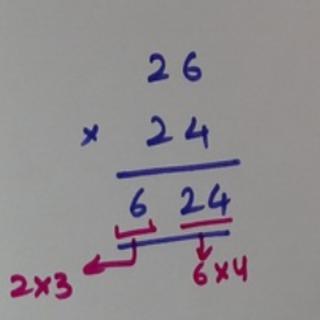 26
× 24
6 24
2×3
6×4